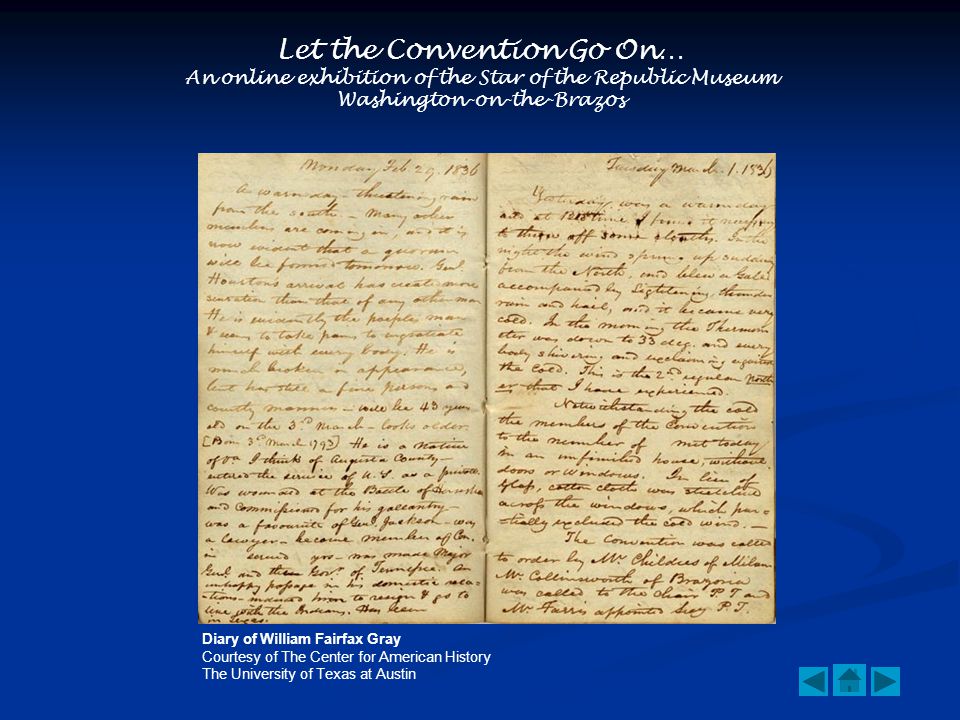 Let the Convention Go On...
An online exhibition of the Star of the Republic Museum
Washington-on-the-Brazos
Monday Feb. 29. 1836
A warm day, threatening rain
from the south – Many other
members are coming in, and it is
now evident that a quorum
will be formed tomorrow. Genl.
Houston's arrival has created more
sensation than that of any other man
He is evidently the people's man
& seems to take pains to ingratiate
himself with every body. He is
much broken in appearance,
but has still a fine person and
courtly manners – will be 43 years
old on the 3rd March – looks older.
[Born 3rd March 1793] He is a native
of Va. I think of Augusta County –
entered the service of U.S. as a private
Was wounded at the Battle of
and Commissioned for his gallantry –
was a favourite of Genl. Jackson – was
a lawyer – became member of Con.
in served yrs – was made Major
Genl. and then Govr. of Tennessee. An
unhappy passage in his domestic rela-
tions induced him to resign & go to
live with the Indians. Has been
in Texas.
Tuesday March. 1. 1836
Yesterday was a warm day
and at time I found it necessary
to throw off some clothes. In the
night the wind sprung up suddenly
from the North, and blew a Gale
accompanied by Lightening, thunder
rain and hail, and it became very
cold. In the morning the Thermom
eter was down to 33 deg. and every
body shivering and exclaiming against
the cold. This is the 2nd regular north
er that I have experienced.
Notwithstanding the cold
the members of the Convention
to the number of met today
in an unfinished house, without
doors or windows. In lieu of
glass, cotton cloth was stretched
across the windows, which par-
tially excluded the cold wind. –
The Convention was called
to order by Mr. Childress of Milam
Mr. Collinsworth of Brazoria
was called to the chair P.T and
Mr. Farris appointed Secy P.T.
Diary of William Fairfax Gray
Courtesy of The Center for American History
The University of Texas at Austin